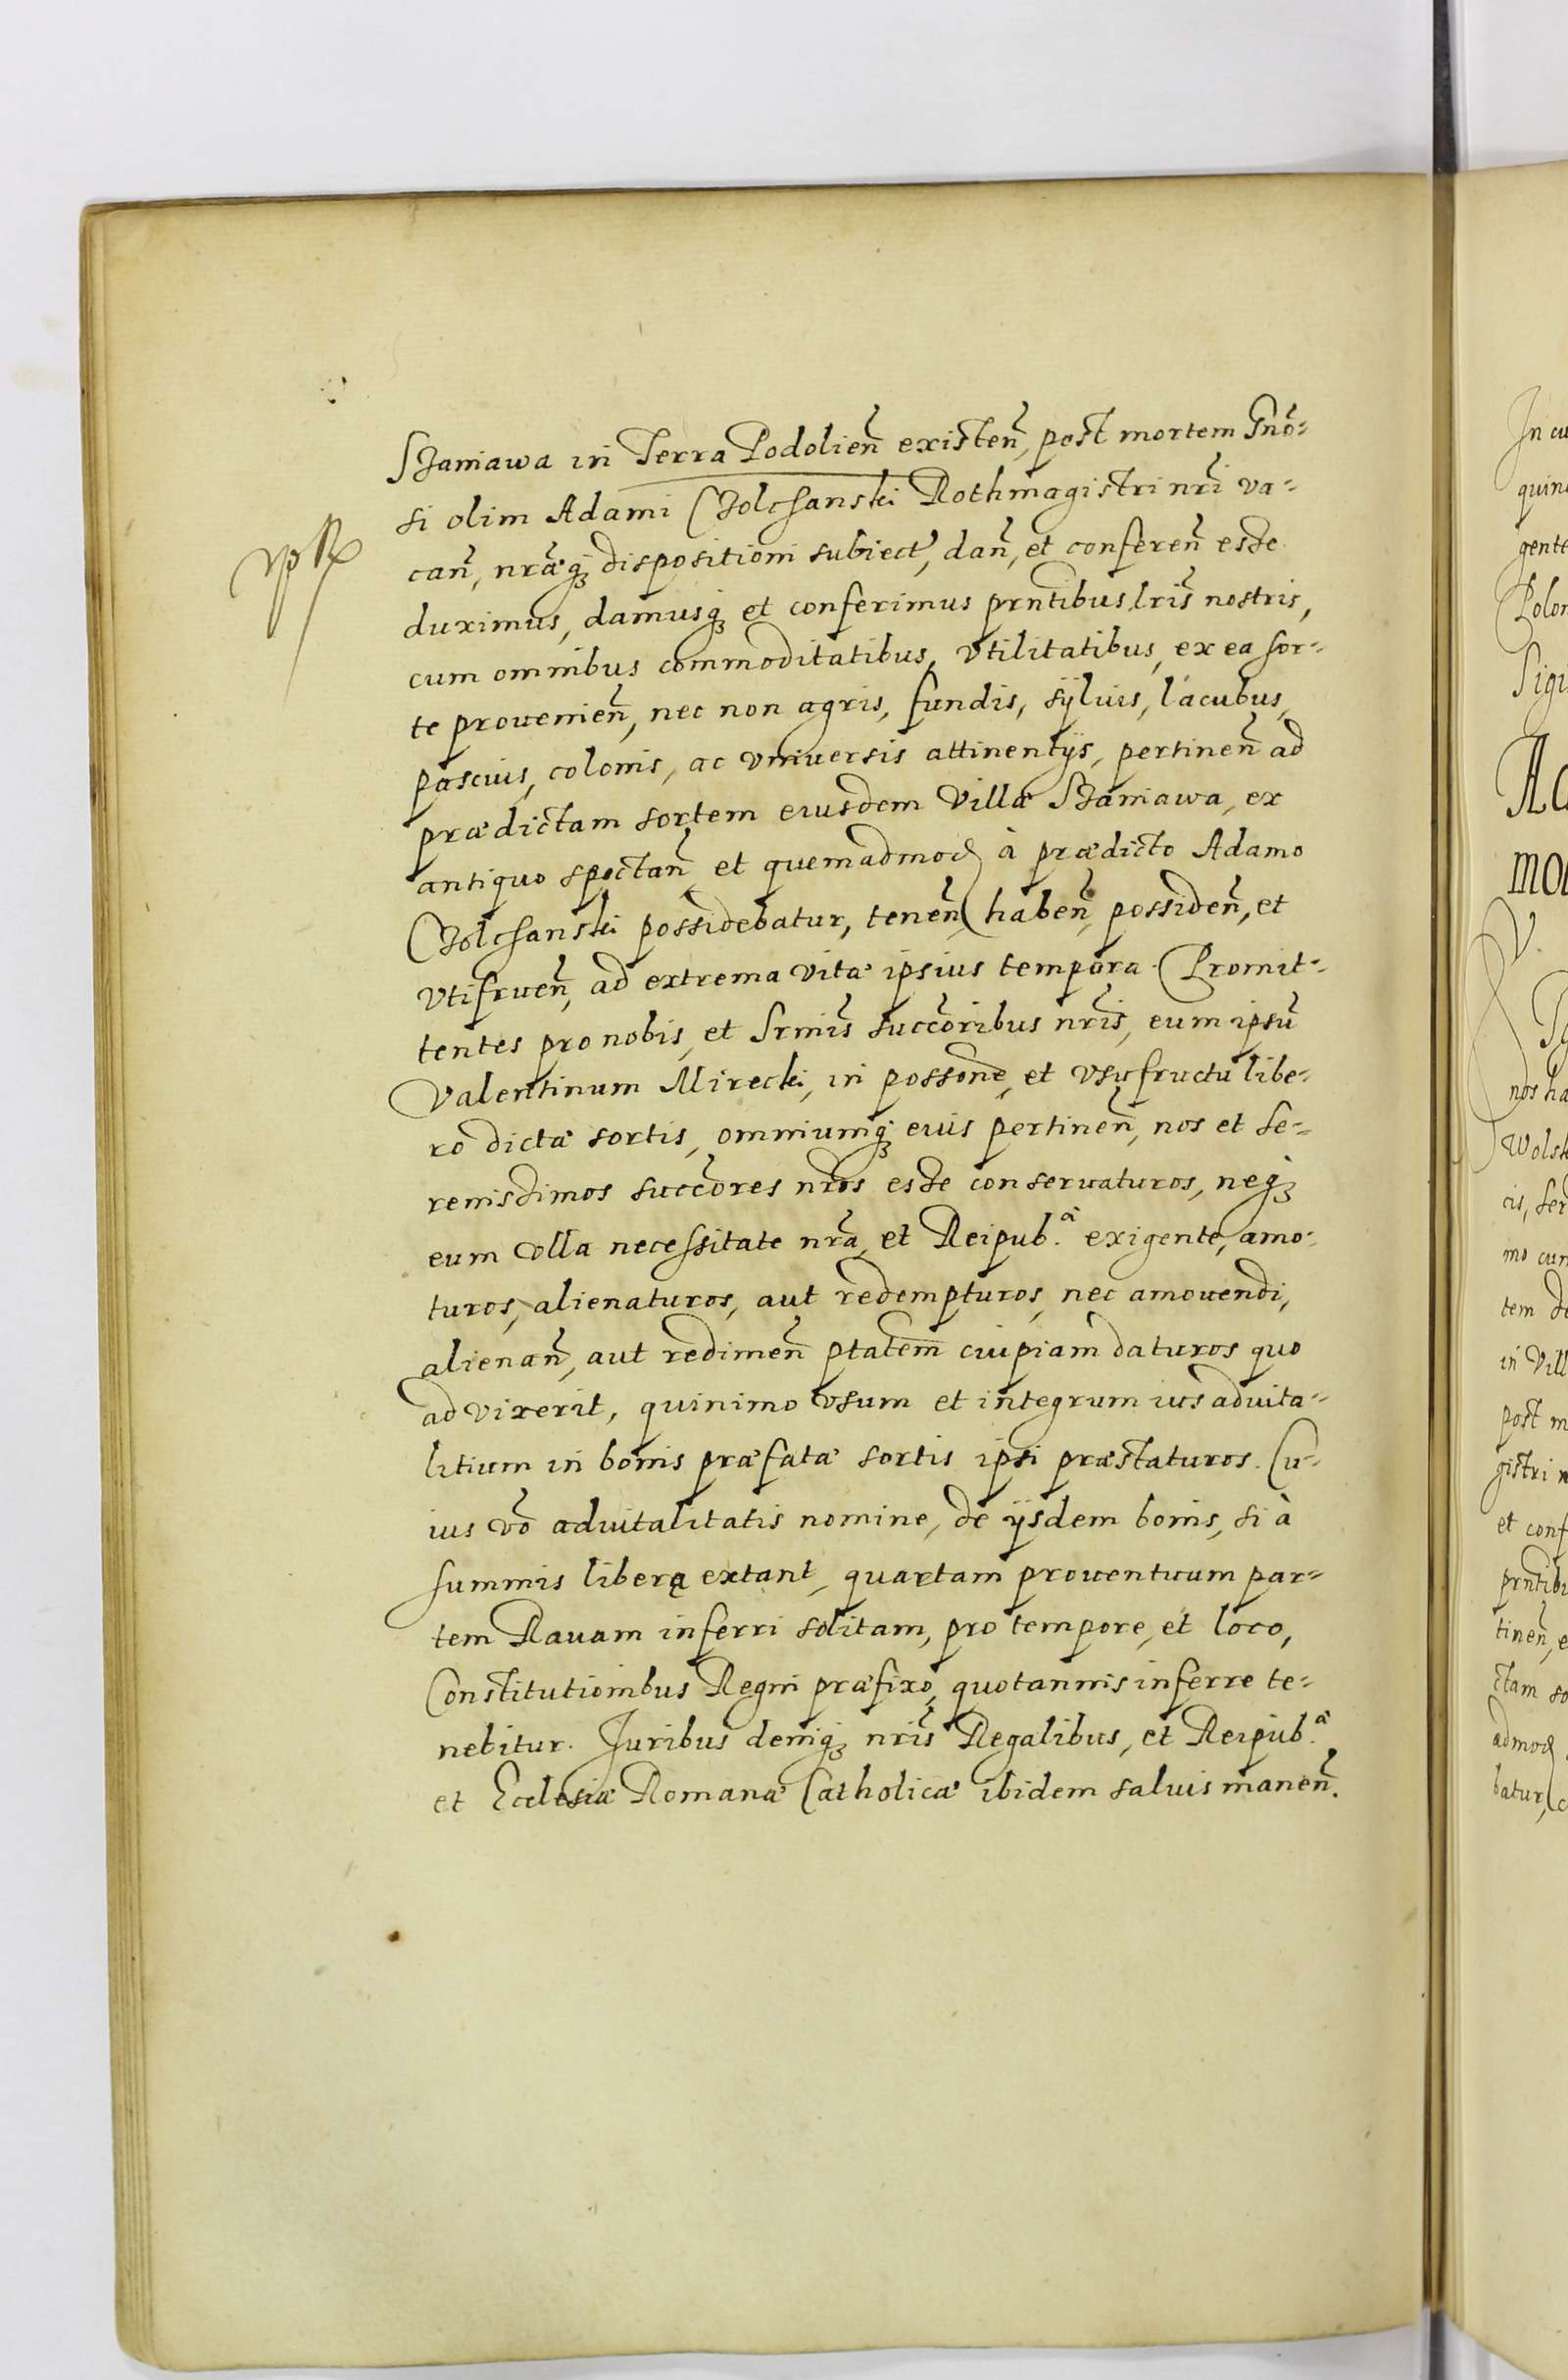 Szaniawa in Terra Podolień existeń, post mortem Gnõ-
si olim Adami Czolchanski Rothmagistri nrĩ va-
cań, nrãeq₃ dispositioni subiect', dań, et confereń esse
duximus, damusq₃ et conferimus prntĩbus lrĩs nostris,
cum omnibus commoditatibus, vtilitatibus, ex ea sor-
te prouenień, nec non agris, fundis, sÿluis, lacubus,
pascuis, colonis, ac vniuersis attinentÿs, pertineń ad
prædictam sortem eiusdem Villæ Szaniawa, ex
antiquo spectań et quemadmod à prædicto Adamo
Czolchanski possidebatur, teneń, habeń, possideń, et
vtifrueń, ad extrema vitæ ipsius tempora. Promit-
tentes pro nobis, et Srmĩs succõribus nrĩs, eum ipsũ
Valentinum Mirecki, in possonẽ, et vsufructu libe-
ro dictæ sortis, omniumq₃ eius pertineń, nos et Se-
renissimos succõres nrõs esse conseruaturos, neq₃
eum vlla necessitate nrã, et Reipub.ᵃ exigente, amo-
turos, alienaturos, aut redempturos, nec amouendi,
alienań, aut redimeń ptatẽm cuipiam daturos quo
ad vixerit, quinimo vsum et integrum ius aduita-
litium in bonis præfatæ sortis ipsi præstaturos. Cu-
ius võ aduitalitatis nomine, de ÿsdem bonis, si à
summis liberę extant, quartam prouentuum par-
tem Rauam inferri solitam, pro tempore, et loco,
Constitutionibus Regni præfixo, quotannis inferre te-
nebitur. Juribus deniq₃ nrĩs Regalibus, et Reipub.ᵃ
et Ecclesiæ Romanæ Catholicæ ibidem saluis maneń.
In cu
quin
gente
Polon
Sigi
Ac
mo
V.
nos ha
Wolsk
cis, ser
mo cun
tem de
in Vill
post m
gistri n
et conf
prntibu
tineń, e
ctam so
admod
batur, c